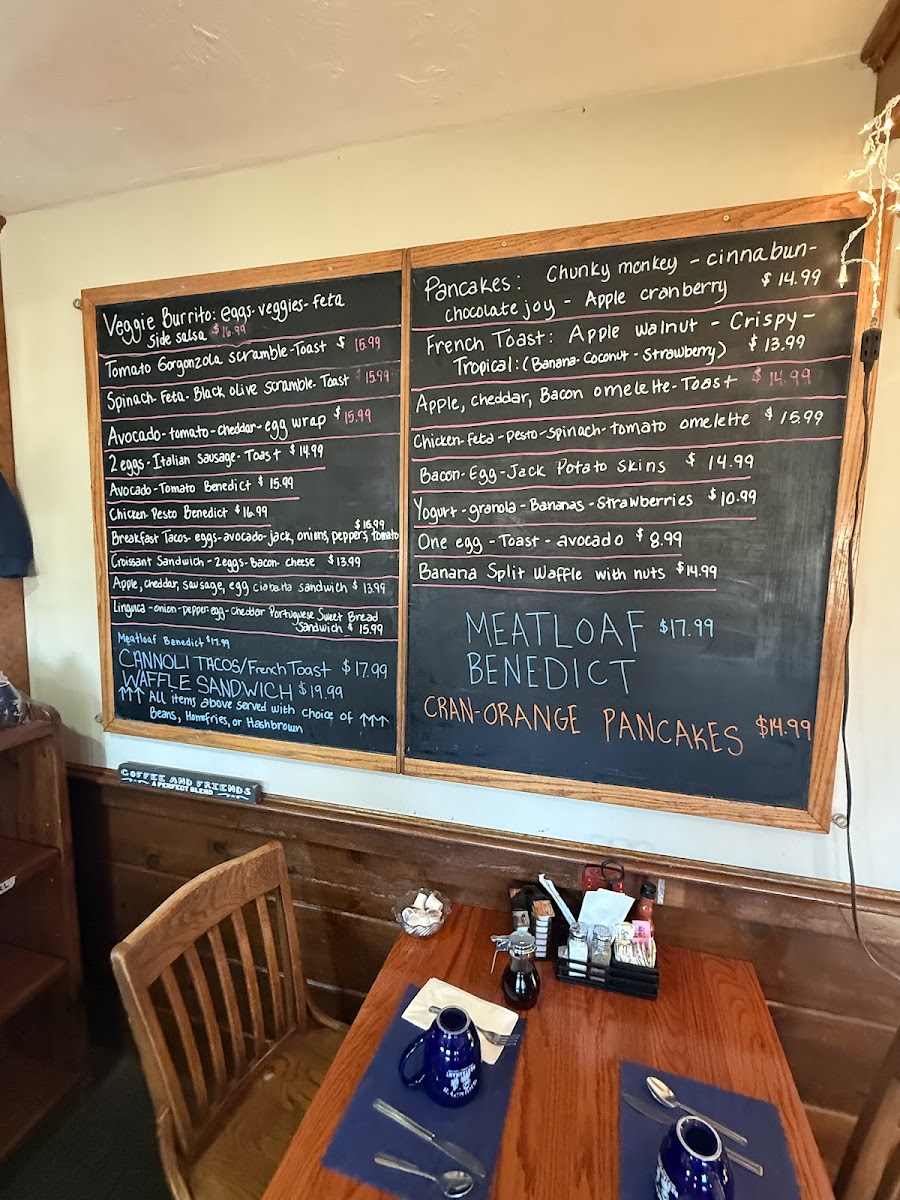 Veggie Burrito: eggs-veggies-feta
Side salsa $16.99
Tomato Gorgonzola scramble-Toast $ 15.99
Spinach-Feta-Black olive scramble-Toast $15.99
Avocado-tomato-cheddar-egg wrap $15.99
2 eggs-Italian Sausage-Toast $14.99
Avocado-Tomato Benedict $ 15.99
Chicken Pesto Benedict $16.99
$16.99
Breakfast Tacos-eggs-avocado-jack, onions, peppers, tomato
Croissant Sandwich-2eggs-Bacon-cheese $13.99
Apple, cheddar, sausage, egg ciabatta sandwich $13.99
Linguica-onion-pepper-egg-cheddar Portuguese Sweet Bread
Sandwich $ 15.99
Meatloaf Benedict $17.99
CANNOLI TACOS/French Toast $17.99
WAFFLE SANDWICH $19.99
↑↑↑ All items above served with choice of ↑↑↑
Beans, Homefries, or Hashbrown
Pancakes: Chunky monkey - cinnabun-
chocolate joy - Apple cranberry $14.99
French Toast: Apple walnut - Crispy -
Tropical: (Banana-Coconut-Strawberry) $13.99
Apple, cheddar, Bacon omelette-Toast $14.99
Chicken-feta-pesto-spinach-tomato omelette $15.99
Bacon-Egg-Jack Potato Skins $ 14.99
Yogurt-granola-Bananas-Strawberries $10.99
One egg-Toast-avocado $8.99
Banana Split Waffle with nuts $14.99
MEATLOAF $17.99
BENEDICT
CRAN-ORANGE PANCAKES $14.99
COFFEE AND FRIENDS
A PERFECT BLEND